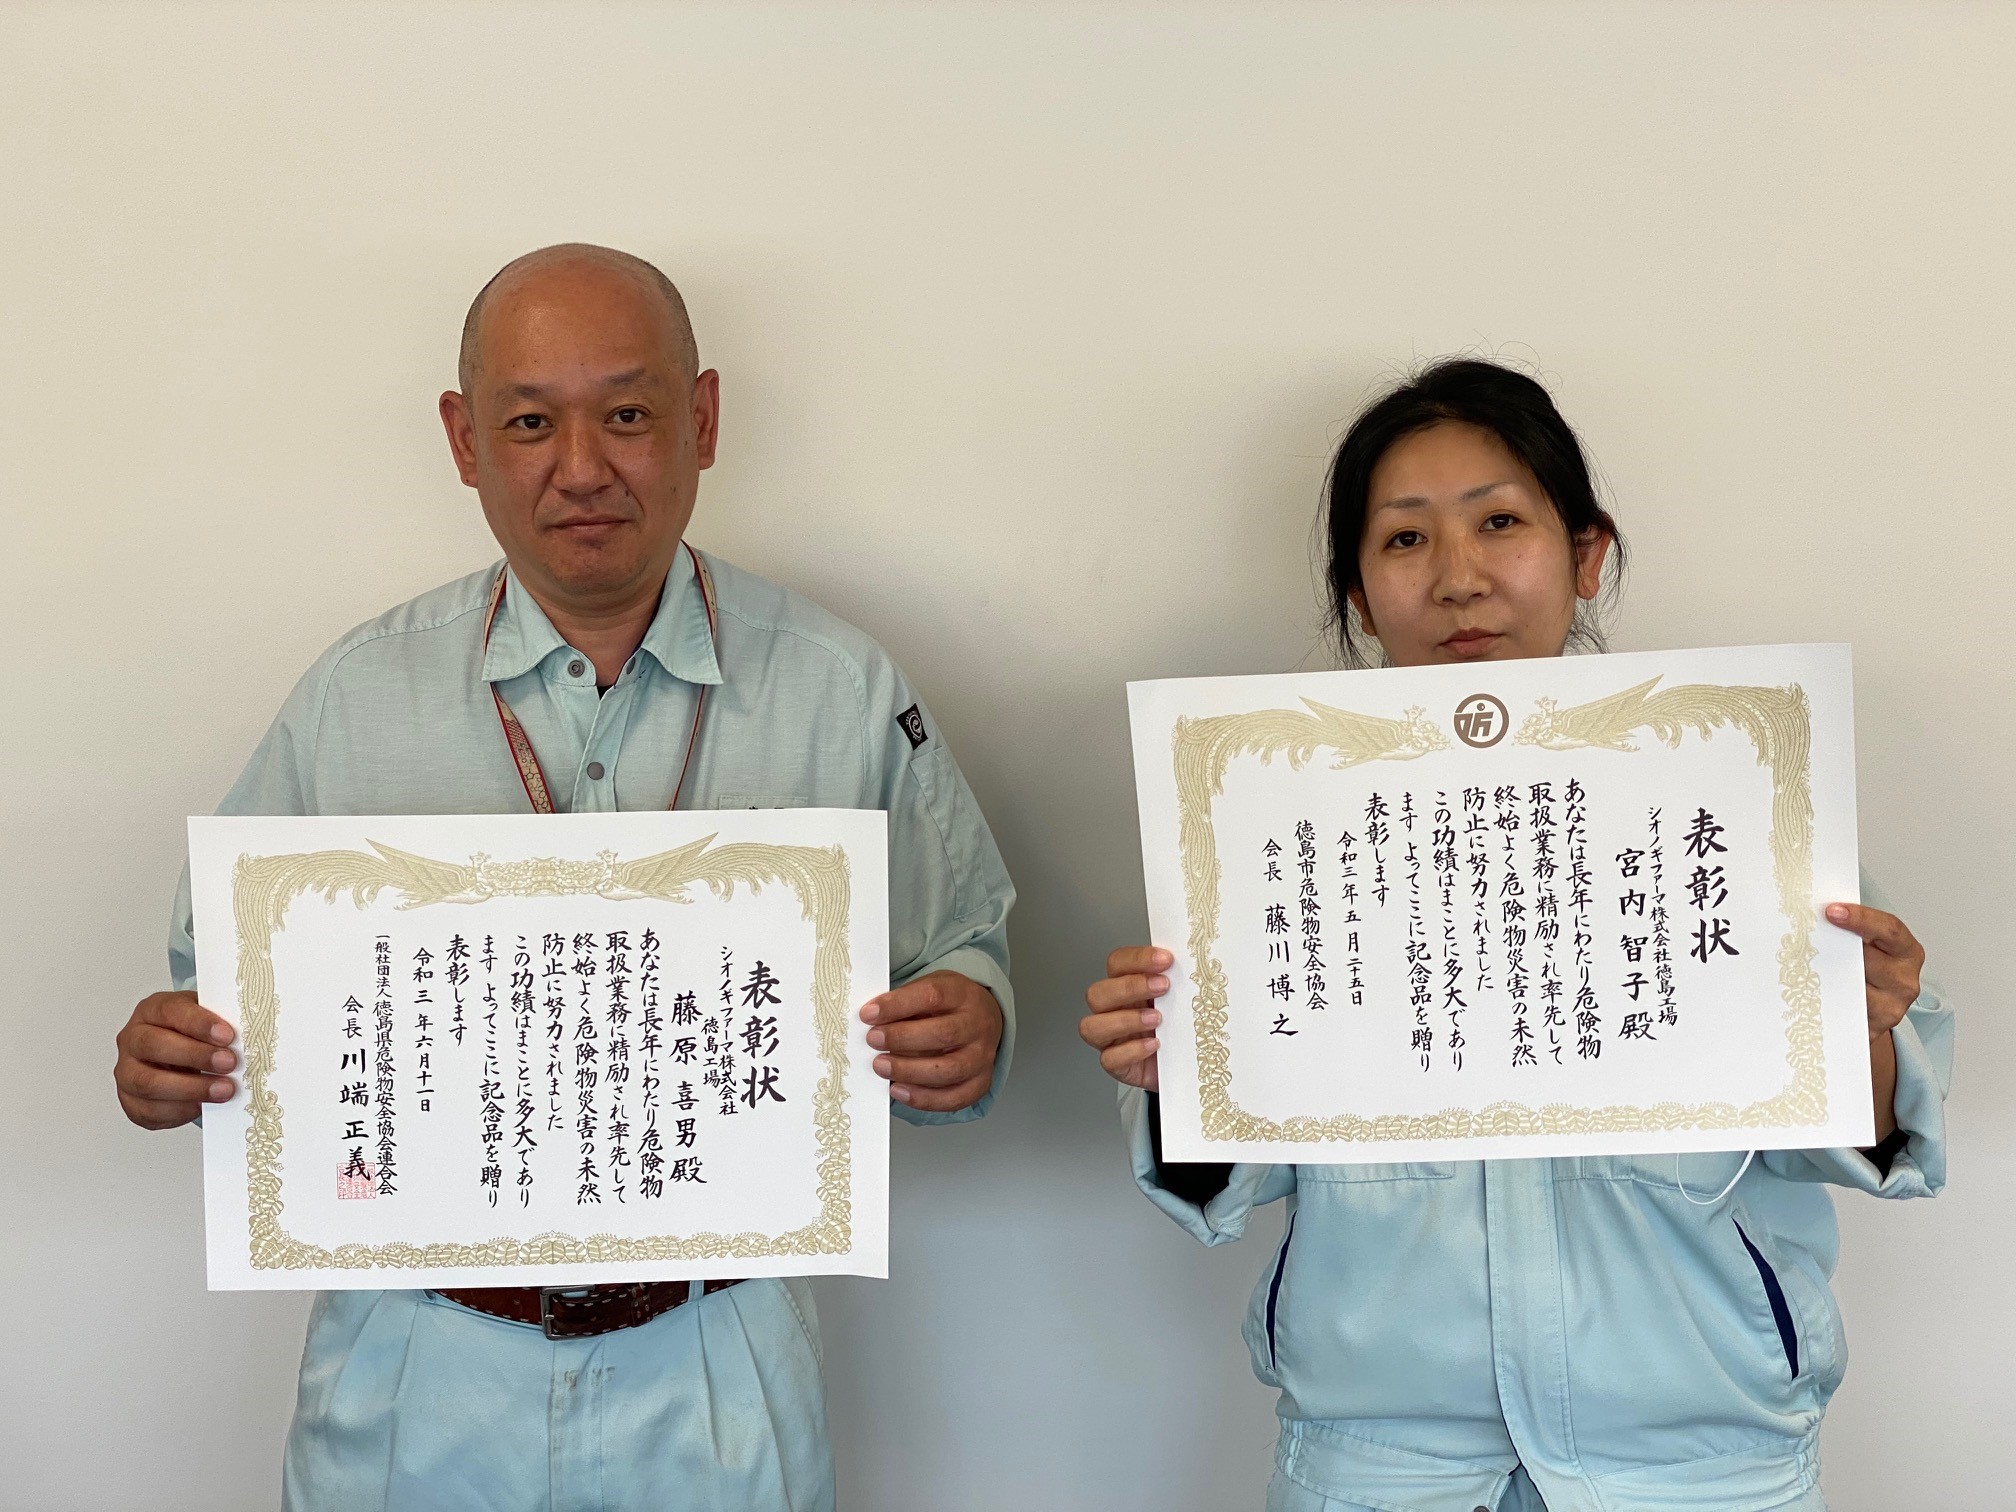 表彰状
シオノギファーマ株式会社
徳島工場
藤原喜男殿
あなたは長年にわたり危険物
取扱業務に精励され率先して
終始よく危険物災害の未然
防止に努力されました
この功績はまことに多大であり
ます よってここに記念品を贈り
表彰します
令和三年六月十一日
一般社団法人徳島県危険物安全協会連合会
会長 川端正義
表彰状
シオノギファーマ株式会社徳島工場
宮内智子殿
あなたは長年にわたり危険物
取扱業務に精励され率先して
終始よく危険物災害の未然
防止に努力されました
この功績はまことに多大であり
ます よってここに記念品を贈り
表彰します
令和三年五月二十五日
徳島市危険物安全協会
会長 藤川博之